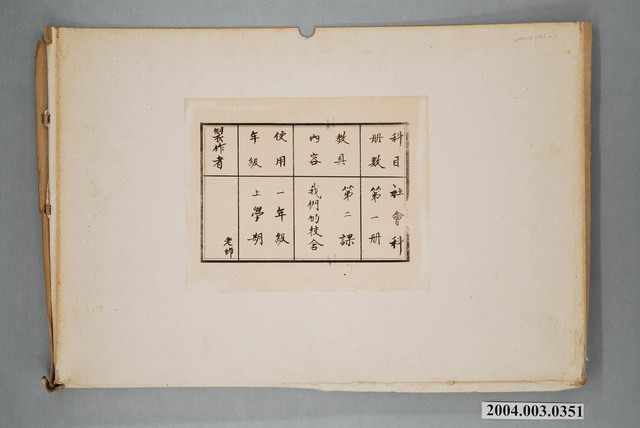 科目 社會科
册数 第一册
教具 第二課
內容 我們的校舍
使用 一年級
年級 上學期
製作者 老師
2004.003.0351